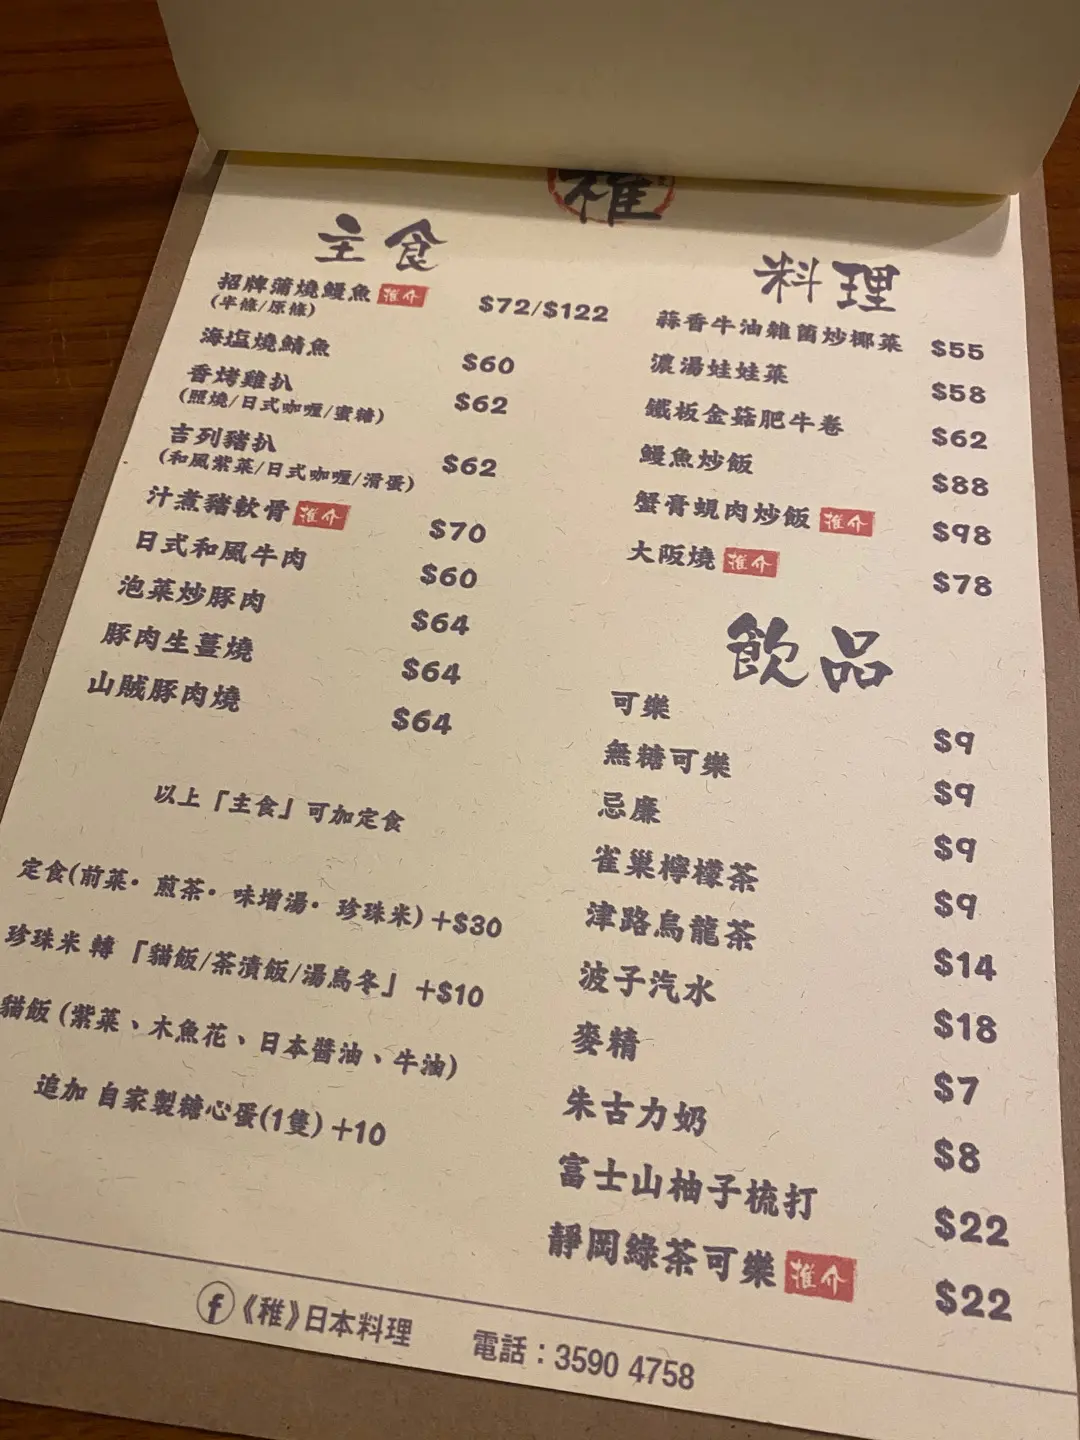 稚
主食
招牌蒲燒鰻魚 推介 $72/$122
(半條/原條)
海塩燒鯖魚 $60
香烤雞扒 $62
(照燒/日式咖喱/蜜糖)
吉列豬扒 $62
(和風紫菜/日式咖喱/滑蛋)
汁煮豬軟骨 推介 $70
日式和風牛肉 $60
泡菜炒豚肉 $64
豚肉生薑燒 $64
山賊豚肉燒 $64
以上「主食」可加定食
定食(前菜・煎茶・味增湯・珍珠米) +$30
珍珠米 轉 「貓飯/茶漬飯/湯烏冬」 +$10
貓飯 (紫菜、木魚花、日本醬油、牛油)
追加 自家製糖心蛋(1隻) +10
料理
蒜香牛油雜菌炒椰菜 $55
濃湯娃娃菜 $58
鐵板金菇肥牛卷 $62
鰻魚炒飯 $88
蟹膏蜆肉炒飯 推介 $98
大阪燒 推介 $78
飲品
可樂 $9
無糖可樂 $9
忌廉 $9
雀巢檸檬茶 $9
津路烏龍茶 $14
波子汽水 $18
麥精 $7
朱古力奶 $8
富士山柚子梳打 $22
靜岡綠茶可樂 推介 $22
f 《稚》日本料理 電話：3590 4758